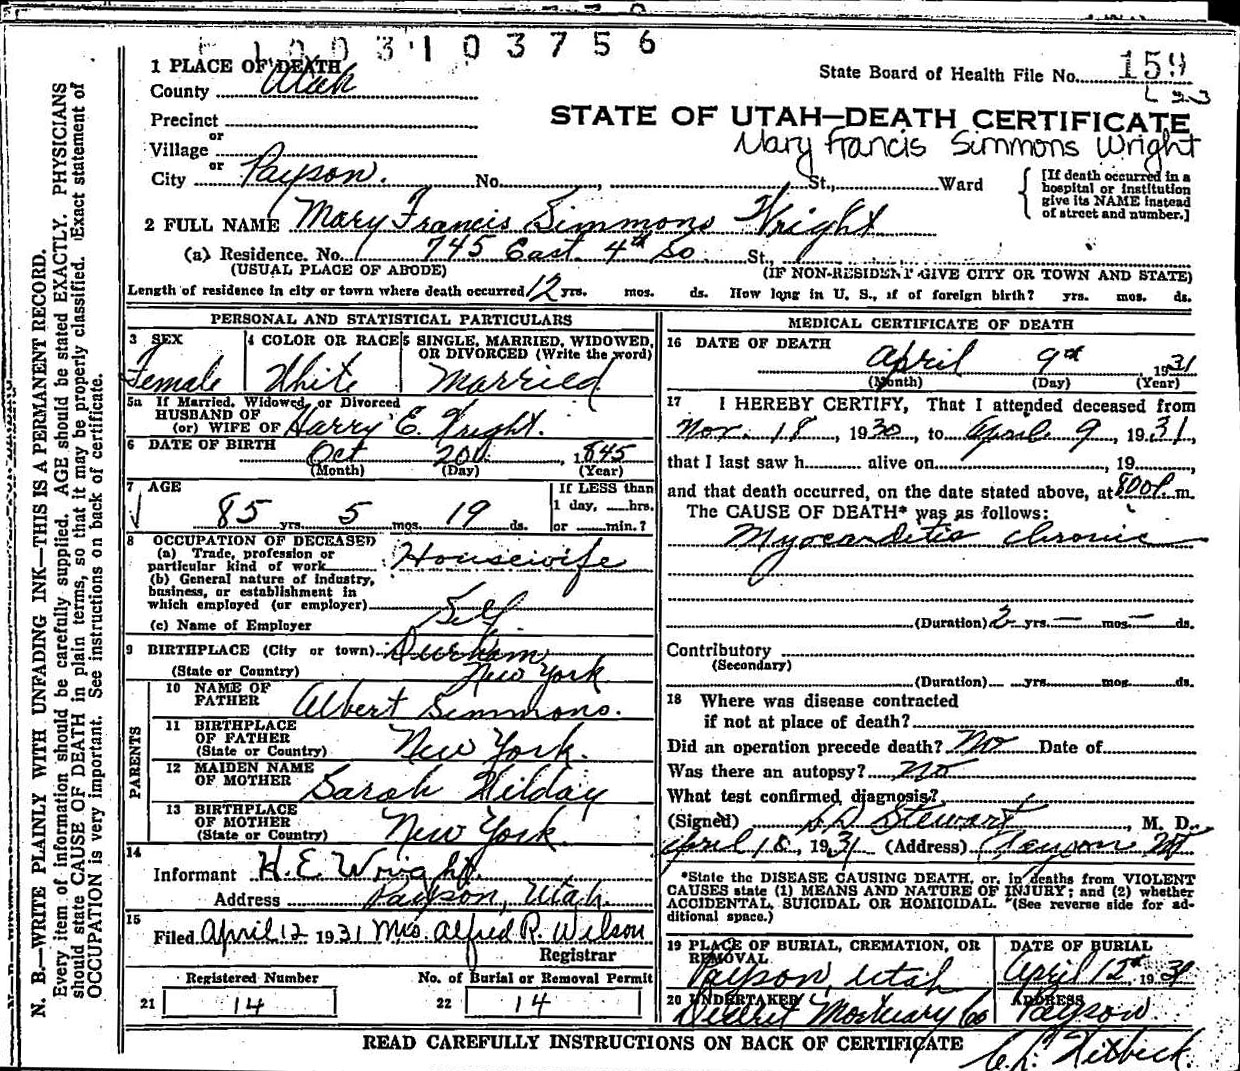 1003103756
1 PLACE OF DEATH
County Utah
State Board of Health File No. 159
Precinct
or
Village
or
City Payson. No. , St., Ward
STATE OF UTAH—DEATH CERTIFICATE
Mary Francis Simmons Wright
[If death occurred in a hospital or institution give its NAME instead of street and number.]
2 FULL NAME Mary Francis Simmons Wright
(a) Residence. No. 745 East 4th So St.,
(USUAL PLACE OF ABODE) (IF NON-RESIDENT GIVE CITY OR TOWN AND STATE)
Length of residence in city or town where death occurred 12 yrs. mos. ds. How long in U. S., if of foreign birth? yrs. mos. ds.
PERSONAL AND STATISTICAL PARTICULARS
3 SEX 4 COLOR OR RACE 5 SINGLE, MARRIED, WIDOWED, OR DIVORCED (Write the word)
Female White Married
5a If Married, Widowed, or Divorced
HUSBAND OF
(or) WIFE OF Harry E. Wright.
6 DATE OF BIRTH Oct 20 , 1845
(Month) (Day) (Year)
7 AGE If LESS than
1 day, hrs.
85 yrs. 5 mos. 19 ds. or min.?
8 OCCUPATION OF DECEASED
(a) Trade, profession or
particular kind of work Housewife
(b) General nature of industry,
business, or establishment in
which employed (or employer) Self
(c) Name of Employer
9 BIRTHPLACE (City or town) Durham
(State or Country) New York
PARENTS
10 NAME OF
FATHER Albert Simmons.
11 BIRTHPLACE
OF FATHER
(State or Country) New York.
12 MAIDEN NAME
OF MOTHER Sarah Hilday
13 BIRTHPLACE
OF MOTHER
(State or Country) New York.
14
Informant H. E. Wright.
Address Payson, Utah.
15
Filed April 12 1931 Mrs. Alfred R. Wilson
Registrar
Registered Number No. of Burial or Removal Permit
21 14 22 14
MEDICAL CERTIFICATE OF DEATH
16 DATE OF DEATH
April 9th 1931
(Month) (Day) (Year)
17 I HEREBY CERTIFY, That I attended deceased from
Nov. 18, 1930, to April 9, 1931,
that I last saw h alive on , 19 ,
and that death occurred, on the date stated above, at 800P m.
The CAUSE OF DEATH* was as follows:
Myocarditis chronic
(Duration) 2 yrs. — mos. — ds.
Contributory
(Secondary)
(Duration) yrs. mos. ds.
18 Where was disease contracted
if not at place of death?
Did an operation precede death? No Date of
Was there an autopsy? No
What test confirmed diagnosis?
(Signed) Stewart, M. D.
April 18, 1931 (Address) Payson Ut
*State the DISEASE CAUSING DEATH, or, in deaths from VIOLENT
CAUSES state (1) MEANS AND NATURE OF INJURY; and (2) whether
ACCIDENTAL, SUICIDAL OR HOMICIDAL. *(See reverse side for ad-
ditional space.)
19 PLACE OF BURIAL, CREMATION, OR REMOVAL DATE OF BURIAL
Payson, Utah April 12th, 1931
20 UNDERTAKER ADDRESS
Deseret Mortuary Co Payson
READ CAREFULLY INSTRUCTIONS ON BACK OF CERTIFICATE
N. B.—WRITE PLAINLY WITH UNFADING INK—THIS IS A PERMANENT RECORD.
Every item of information should be carefully supplied. AGE should be stated EXACTLY. PHYSICIANS
should state CAUSE OF DEATH in plain terms, so that it may be properly classified. Exact statement of
OCCUPATION is very important. See instructions on back of certificate.